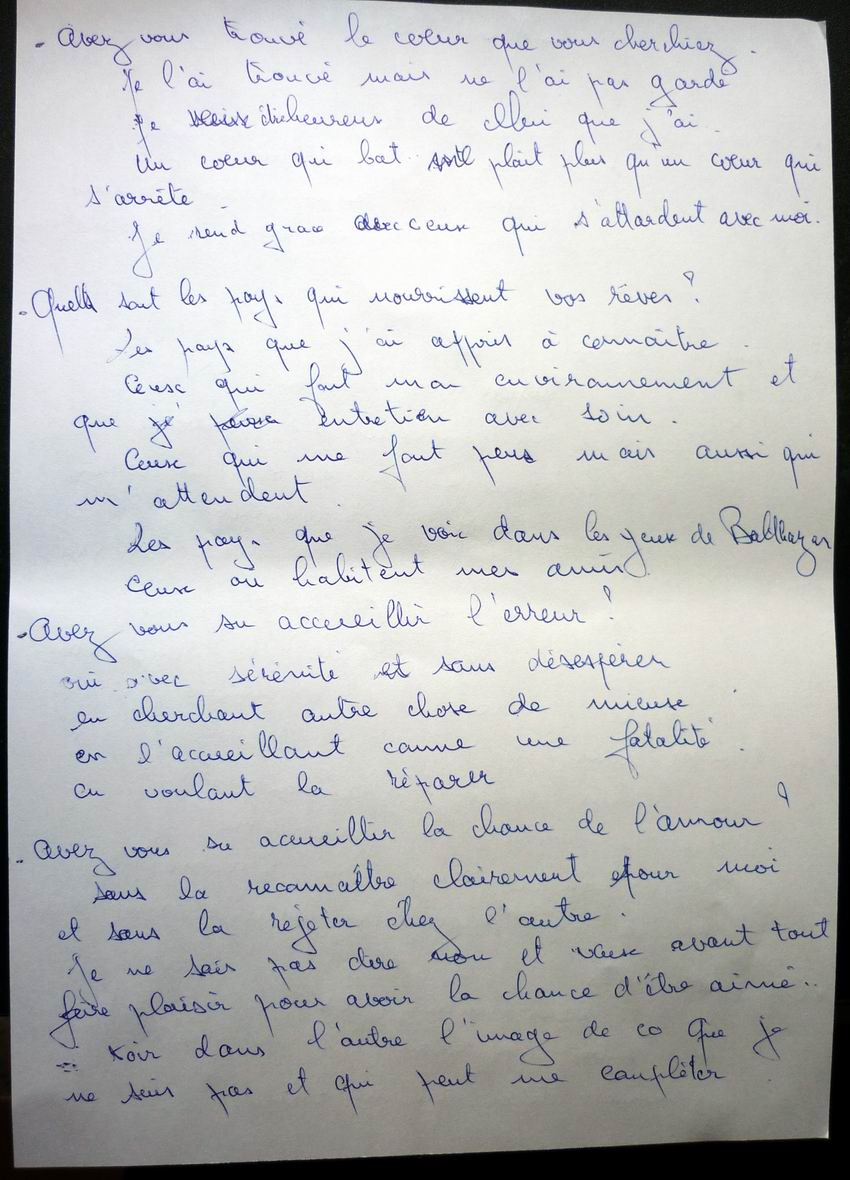 - Avez vous trouvé le coeur que vous cherchiez.
Je l'ai trouvé mais ne l'ai pas gardé
Je suis heureux de celui que j'ai.
Un coeur qui bat plait plus qu'un coeur qui
s'arrête
Je rend grace avec ceux qui s'attardent avec moi.
. Quels sont les pays qui nourrissent vos rêves ?
Les pays que j'ai appris à connaître.
Ceux qui font mon environnement et
que j' entretien avec soin.
Ceux qui me font peur mais aussi qui
m'attendent.
Les pays que je vois dans les yeux de Balthazar
ceux où habitent mes amis.
- Avez vous su accueillir l'erreur ?
oui avec sérénité et sans désespérer
en cherchant autre chose de mieux.
en l'accueillant comme une fatalité.
en voulant la réparer
.. Avez vous su accueillir la chance de l'amour ?
sans la reconnaître clairement pour moi
et sans la rejeter chez l'autre.
Je ne sais pas dire non et veux avant tout
faire plaisir pour avoir la chance d'être aimé..
voir dans l'autre l'image de ce que je
ne suis pas et qui peut me compléter